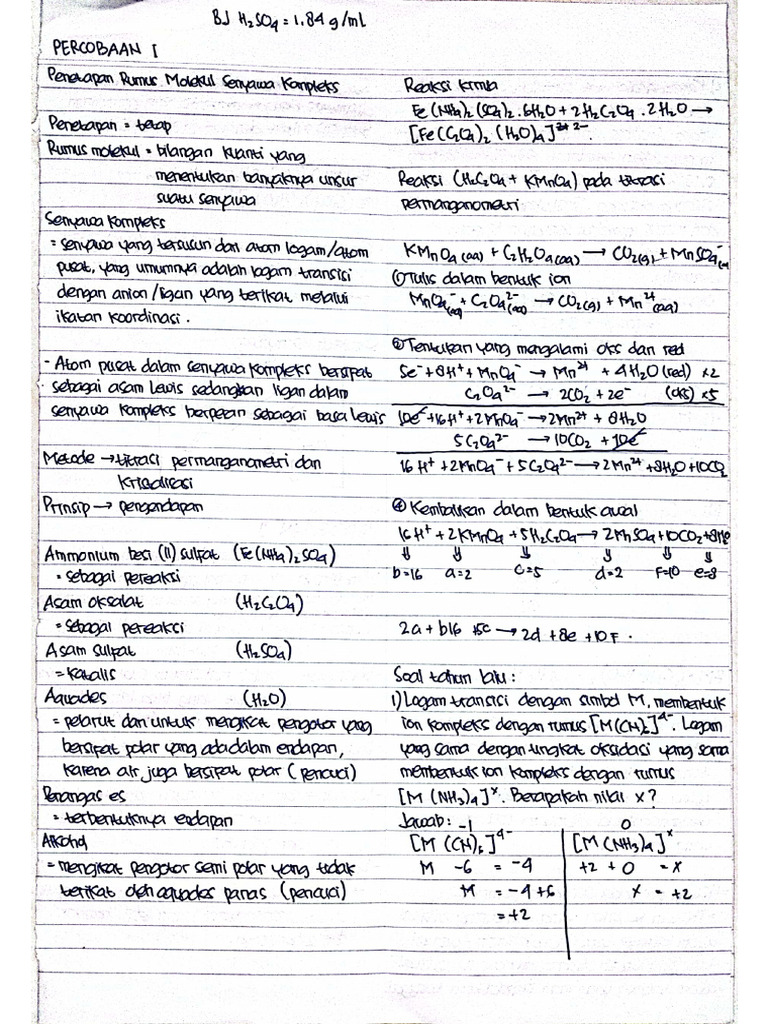 BJ H₂SO₄ = 1.84 g/ml
PERCOBAAN I
Penetapan Rumus Molekul Senyawa Kompleks
Penetapan = tetap
Rumus molekul = bilangan kuanti yang
menentukan banyaknya unsur
suatu senyawa
Senyawa Kompleks
= senyawa yang tersusun dari atom logam/atom
pusat, yang umumnya adalah logam transisi
dengan anion/ligan yang terikat melalui
ikatan koordinasi.
- Atom pusat dalam senyawa kompleks bersifat
sebagai asam lewis sedangkan ligan dalam
senyawa kompleks berperan sebagai basa lewis
Metode → titrasi permanganometri dan
kristalisasi
Prinsip → pengendapan
Ammonium besi (II) sulfat (Fe(NH₄)₂SO₄)
= sebagai pereaksi
Asam oksalat (H₂C₂O₄)
= sebagai pereaksi
Asam sulfat (H₂SO₄)
= katalis
Aquades (H₂O)
= pelarut dan untuk mengikat pengotor yang
bersifat polar yang ada dalam endapan,
karena air juga bersifat polar (pencuci)
Penangas es
= terbentuknya endapan
Alkohol
= mengikat pengotor semi polar yang tidak
terikat oleh aquades panas (pencuci)
Reaksi kimia
Fe(NH₄)₂(SO₄)₂.6H₂O + 2H₂C₂O₄.2H₂O →
[Fe(C₂O₄)₂(H₂O)₄]²⁻.
Reaksi (H₂C₂O₄ + KMnO₄) pada titrasi
permanganometri
KMnO₄(aq) + C₂H₂O₄(aq) → CO₂(g) + MnSO₄⁻(aq)
① Tulis dalam bentuk ion
MnO₄⁻(aq) + C₂O₄²⁻(aq) → CO₂(g) + Mn²⁺(aq)
② Tentukan yang mengalami oks dan red
5e⁻ + 8H⁺ + MnO₄⁻ → Mn²⁺ + 4H₂O (red) x2
C₂O₄²⁻ → 2CO₂ + 2e⁻ (oks) x5
10e⁻ + 16H⁺ + 2MnO₄⁻ → 2Mn²⁺ + 8H₂O
5C₂O₄²⁻ → 10CO₂ + 10e⁻
16H⁺ + 2MnO₄⁻ + 5C₂O₄²⁻ → 2Mn²⁺ + 8H₂O + 10CO₂
④ Kembalikan dalam bentuk awal
16H⁺ + 2KMnO₄ + 5H₂C₂O₄ → 2MnSO₄ + 10CO₂ + 8H₂O
⇓ ⇓ ⇓ ⇓ ⇓ ⇓
b=16 a=2 c=5 d=2 F=10 e=8
2a + b16 + 5c → 2d + 8e + 10F.
Soal tahun lalu :
1) Logam transisi dengan simbol M, membentuk
ion kompleks dengan rumus [M(CN)₆]⁴⁻. Logam
yang sama dengan tingkat oksidasi yang sama
membentuk ion kompleks dengan rumus
[M(NH₃)₄]ˣ. Berapakah nilai x?
Jawab : -1
[M(CN)₆]⁴⁻
M -6 = -4
M = -4+6
= +2
0
[M(NH₃)₄]ˣ
+2 + 0 = x
x = +2